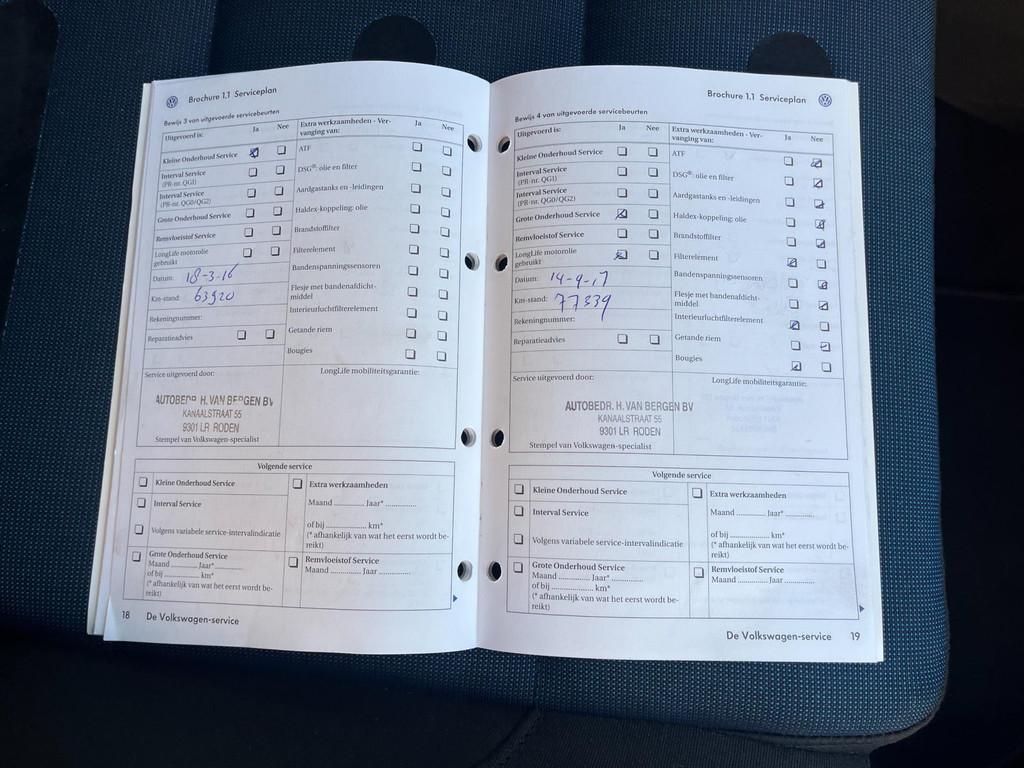 Brochure 1.1 Serviceplan
Bewijs 3 van uitgevoerde servicebeurten
Uitgevoerd is: Ja Nee
Kleine Onderhoud Service
Interval Service
(PR-nr. QG1)
Interval Service
(PR-nr. QG0/QG2)
Grote Onderhoud Service
Remvloeistof Service
LongLife motorolie
gebruikt
Datum: 18-3-16
Km-stand: 63920
Rekeningnummer:
Reparatieadvies
Extra werkzaamheden - Ver-
vanging van: Ja Nee
ATF
DSG®: olie en filter
Aardgastanks en -leidingen
Haldex-koppeling: olie
Brandstoffilter
Filterelement
Bandenspanningssensoren
Flesje met bandenafdicht-
middel
Interieurluchtfilterelement
Getande riem
Bougies
Service uitgevoerd door:
AUTOBEDR. H. VAN BERGEN BV
KANAALSTRAAT 55
9301 LR RODEN
Stempel van Volkswagen-specialist
LongLife mobiliteitsgarantie:
Volgende service
Kleine Onderhoud Service
Interval Service
Volgens variabele service-intervalindicatie
Grote Onderhoud Service
Maand .......... Jaar* ..........
of bij .......... km*
(* afhankelijk van wat het eerst wordt be-
reikt)
Extra werkzaamheden
Maand .......... Jaar* ..........
of bij .......... km*
(* afhankelijk van wat het eerst wordt be-
reikt)
Remvloeistof Service
Maand .......... Jaar ..........
18 De Volkswagen-service
Brochure 1.1 Serviceplan
Bewijs 4 van uitgevoerde servicebeurten
Uitgevoerd is: Ja Nee
Kleine Onderhoud Service
Interval Service
(PR-nr. QG1)
Interval Service
(PR-nr. QG0/QG2)
Grote Onderhoud Service
Remvloeistof Service
LongLife motorolie
gebruikt
Datum: 14-9-17
Km-stand: 77339
Rekeningnummer:
Reparatieadvies
Extra werkzaamheden - Ver-
vanging van: Ja Nee
ATF
DSG®: olie en filter
Aardgastanks en -leidingen
Haldex-koppeling: olie
Brandstoffilter
Filterelement
Bandenspanningssensoren
Flesje met bandenafdicht-
middel
Interieurluchtfilterelement
Getande riem
Bougies
Service uitgevoerd door:
AUTOBEDR. H. VAN BERGEN BV
KANAALSTRAAT 55
9301 LR RODEN
Stempel van Volkswagen-specialist
LongLife mobiliteitsgarantie:
Volgende service
Kleine Onderhoud Service
Interval Service
Volgens variabele service-intervalindicatie
Grote Onderhoud Service
Maand .......... Jaar* ..........
of bij .......... km*
(* afhankelijk van wat het eerst wordt be-
reikt)
Extra werkzaamheden
Maand .......... Jaar* ..........
of bij .......... km*
(* afhankelijk van wat het eerst wordt be-
reikt)
Remvloeistof Service
Maand .......... Jaar ..........
De Volkswagen-service 19